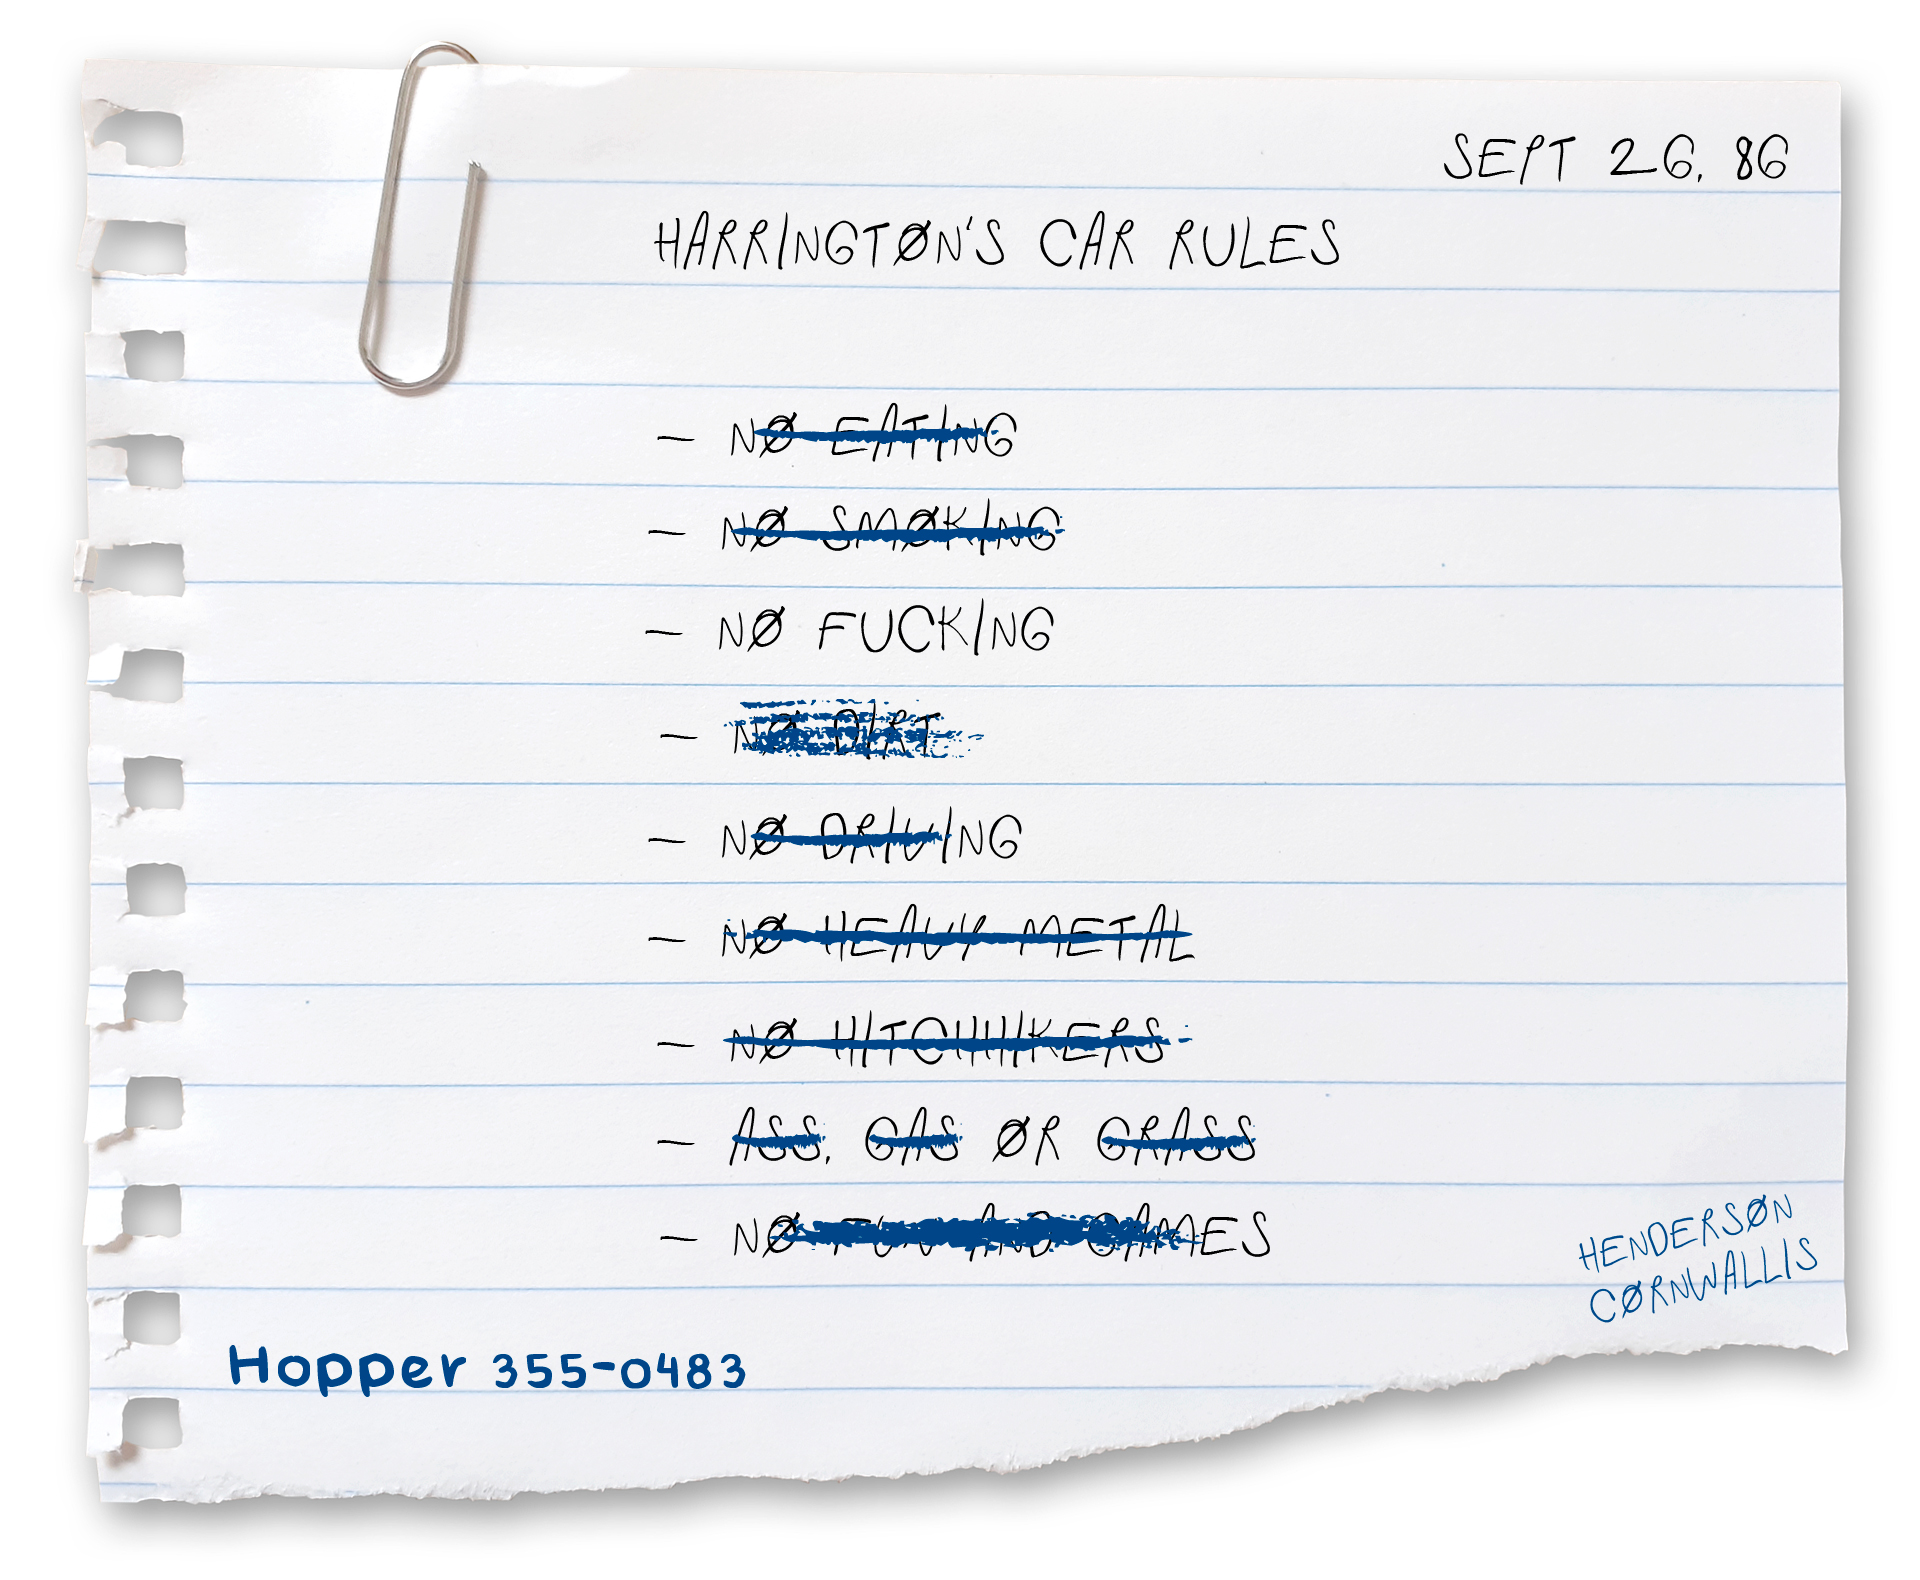 SEPT 26, 86
HARRINGTØN'S CAR RULES
– NØ EATING
– NØ SMØKING
– NØ FUCKING
– NØ DIRT
– NØ DRIVING
– NØ HEAVY METAL
– NØ HITCHHIKERS
– ASS, GAS ØR GRASS
– NØ FUN AND GAMES
HENDERSØN
CØRNWALLIS
Hopper 355-0483